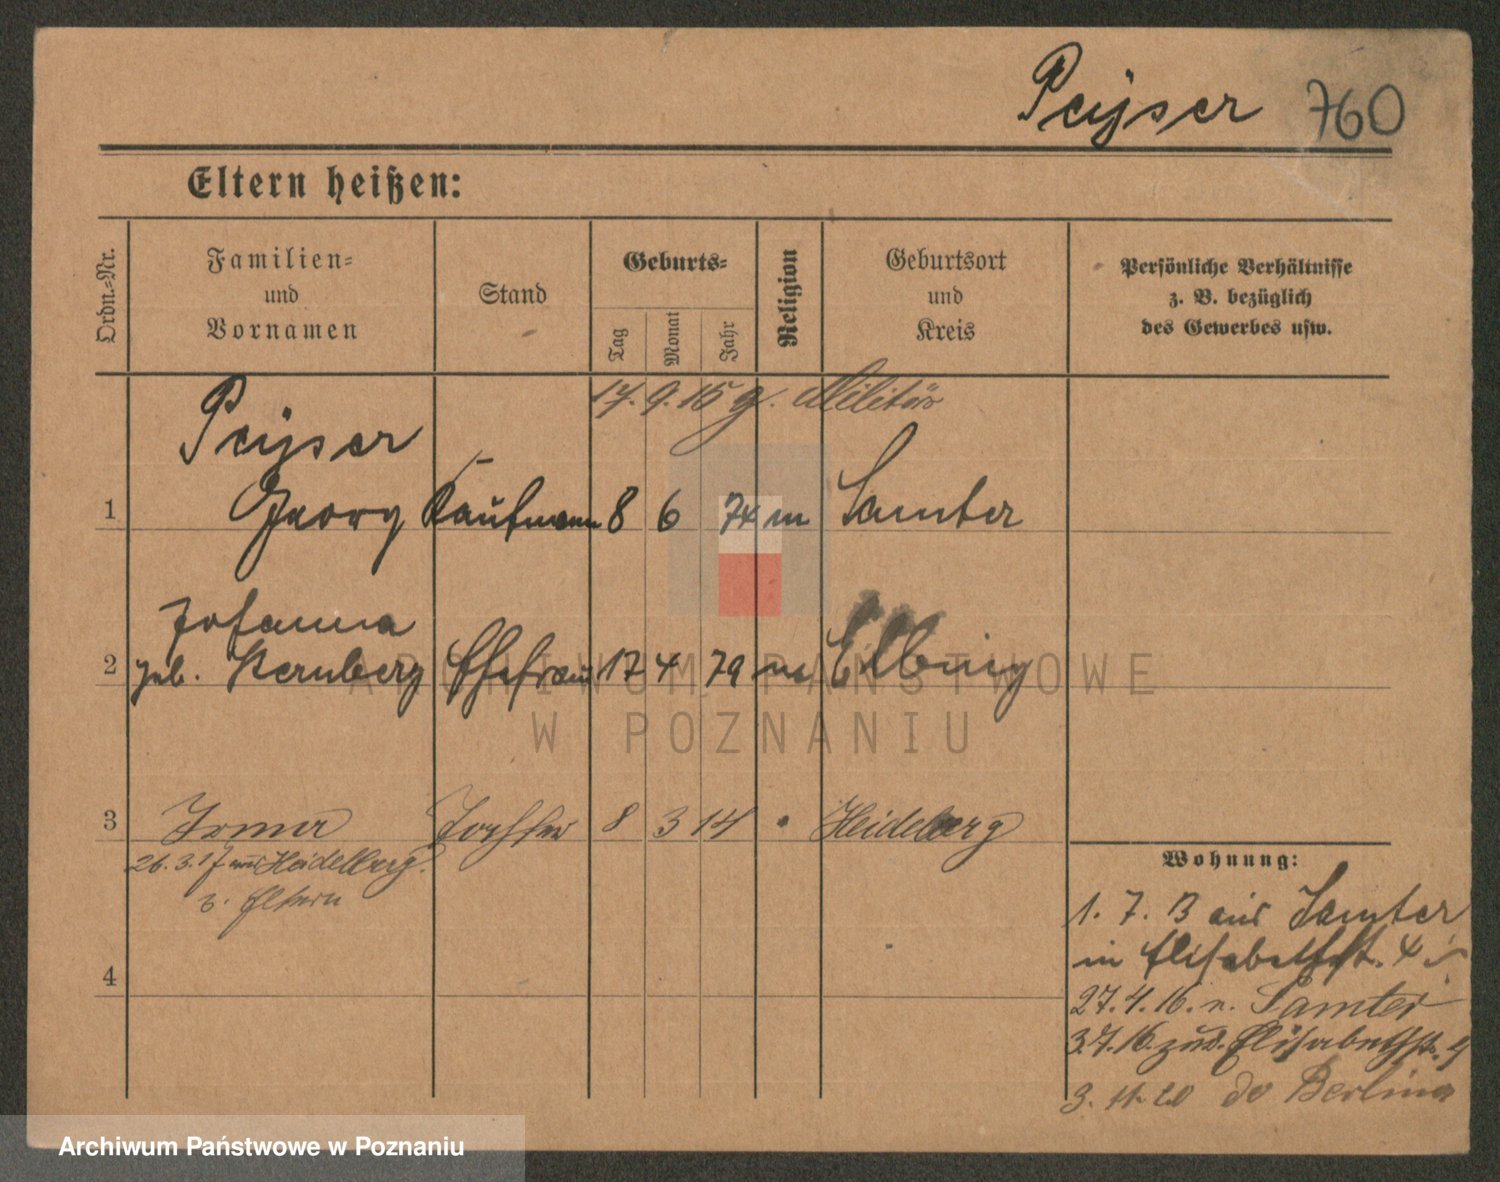 Peyser 760
Eltern heißen:
Ordn.-Nr.
Familien-
und
Vornamen
Stand
Geburts-
Tag
Monat
Jahr
Religion
Geburtsort
und
Kreis
Persönliche Verhältnisse
z. B. bezüglich
des Gewerbes usw.
17. 9. 15 z. Militär
Peyser
1 Georg Kaufmann 8 6 74 m Samter
Johanna
2 geb. Kernberg Ehefrau 17 4 79 m Elbing
3 Irma Tochter 8 3 14 Heidelberg
26. 3. 17 aus Heidelberg
z. Eltern
4
Wohnung:
1. 7. 13 aus Samter
in Elisabethstr. 4
27. 4. 16. n. Samter
3.7.16. zur. Elisabethstr. 4
3. 11. 20 do Berlin
ARCHIWUM PAŃSTWOWE
W POZNANIU
Archiwum Państwowe w Poznaniu